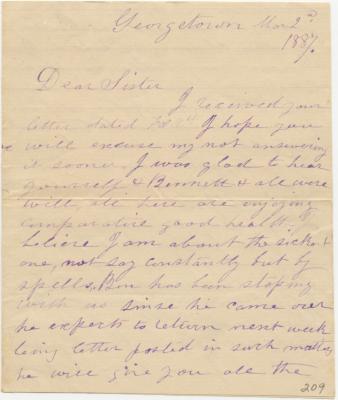 Georgetown Mar 2nd
1887.
Dear Sister
I received your
letter dated Feb I hope you
will excuse my not answering
it sooner. I was glad to hear
yourself & Bennett & all were
well, all here are enjoying
comparative good health. I
believe I am about the sickest
one, not say constantly but by
spells. Ben has been stoping
with us sinse he came over
he expects to return next week
being letter posted in such matters
he will give you all the
209